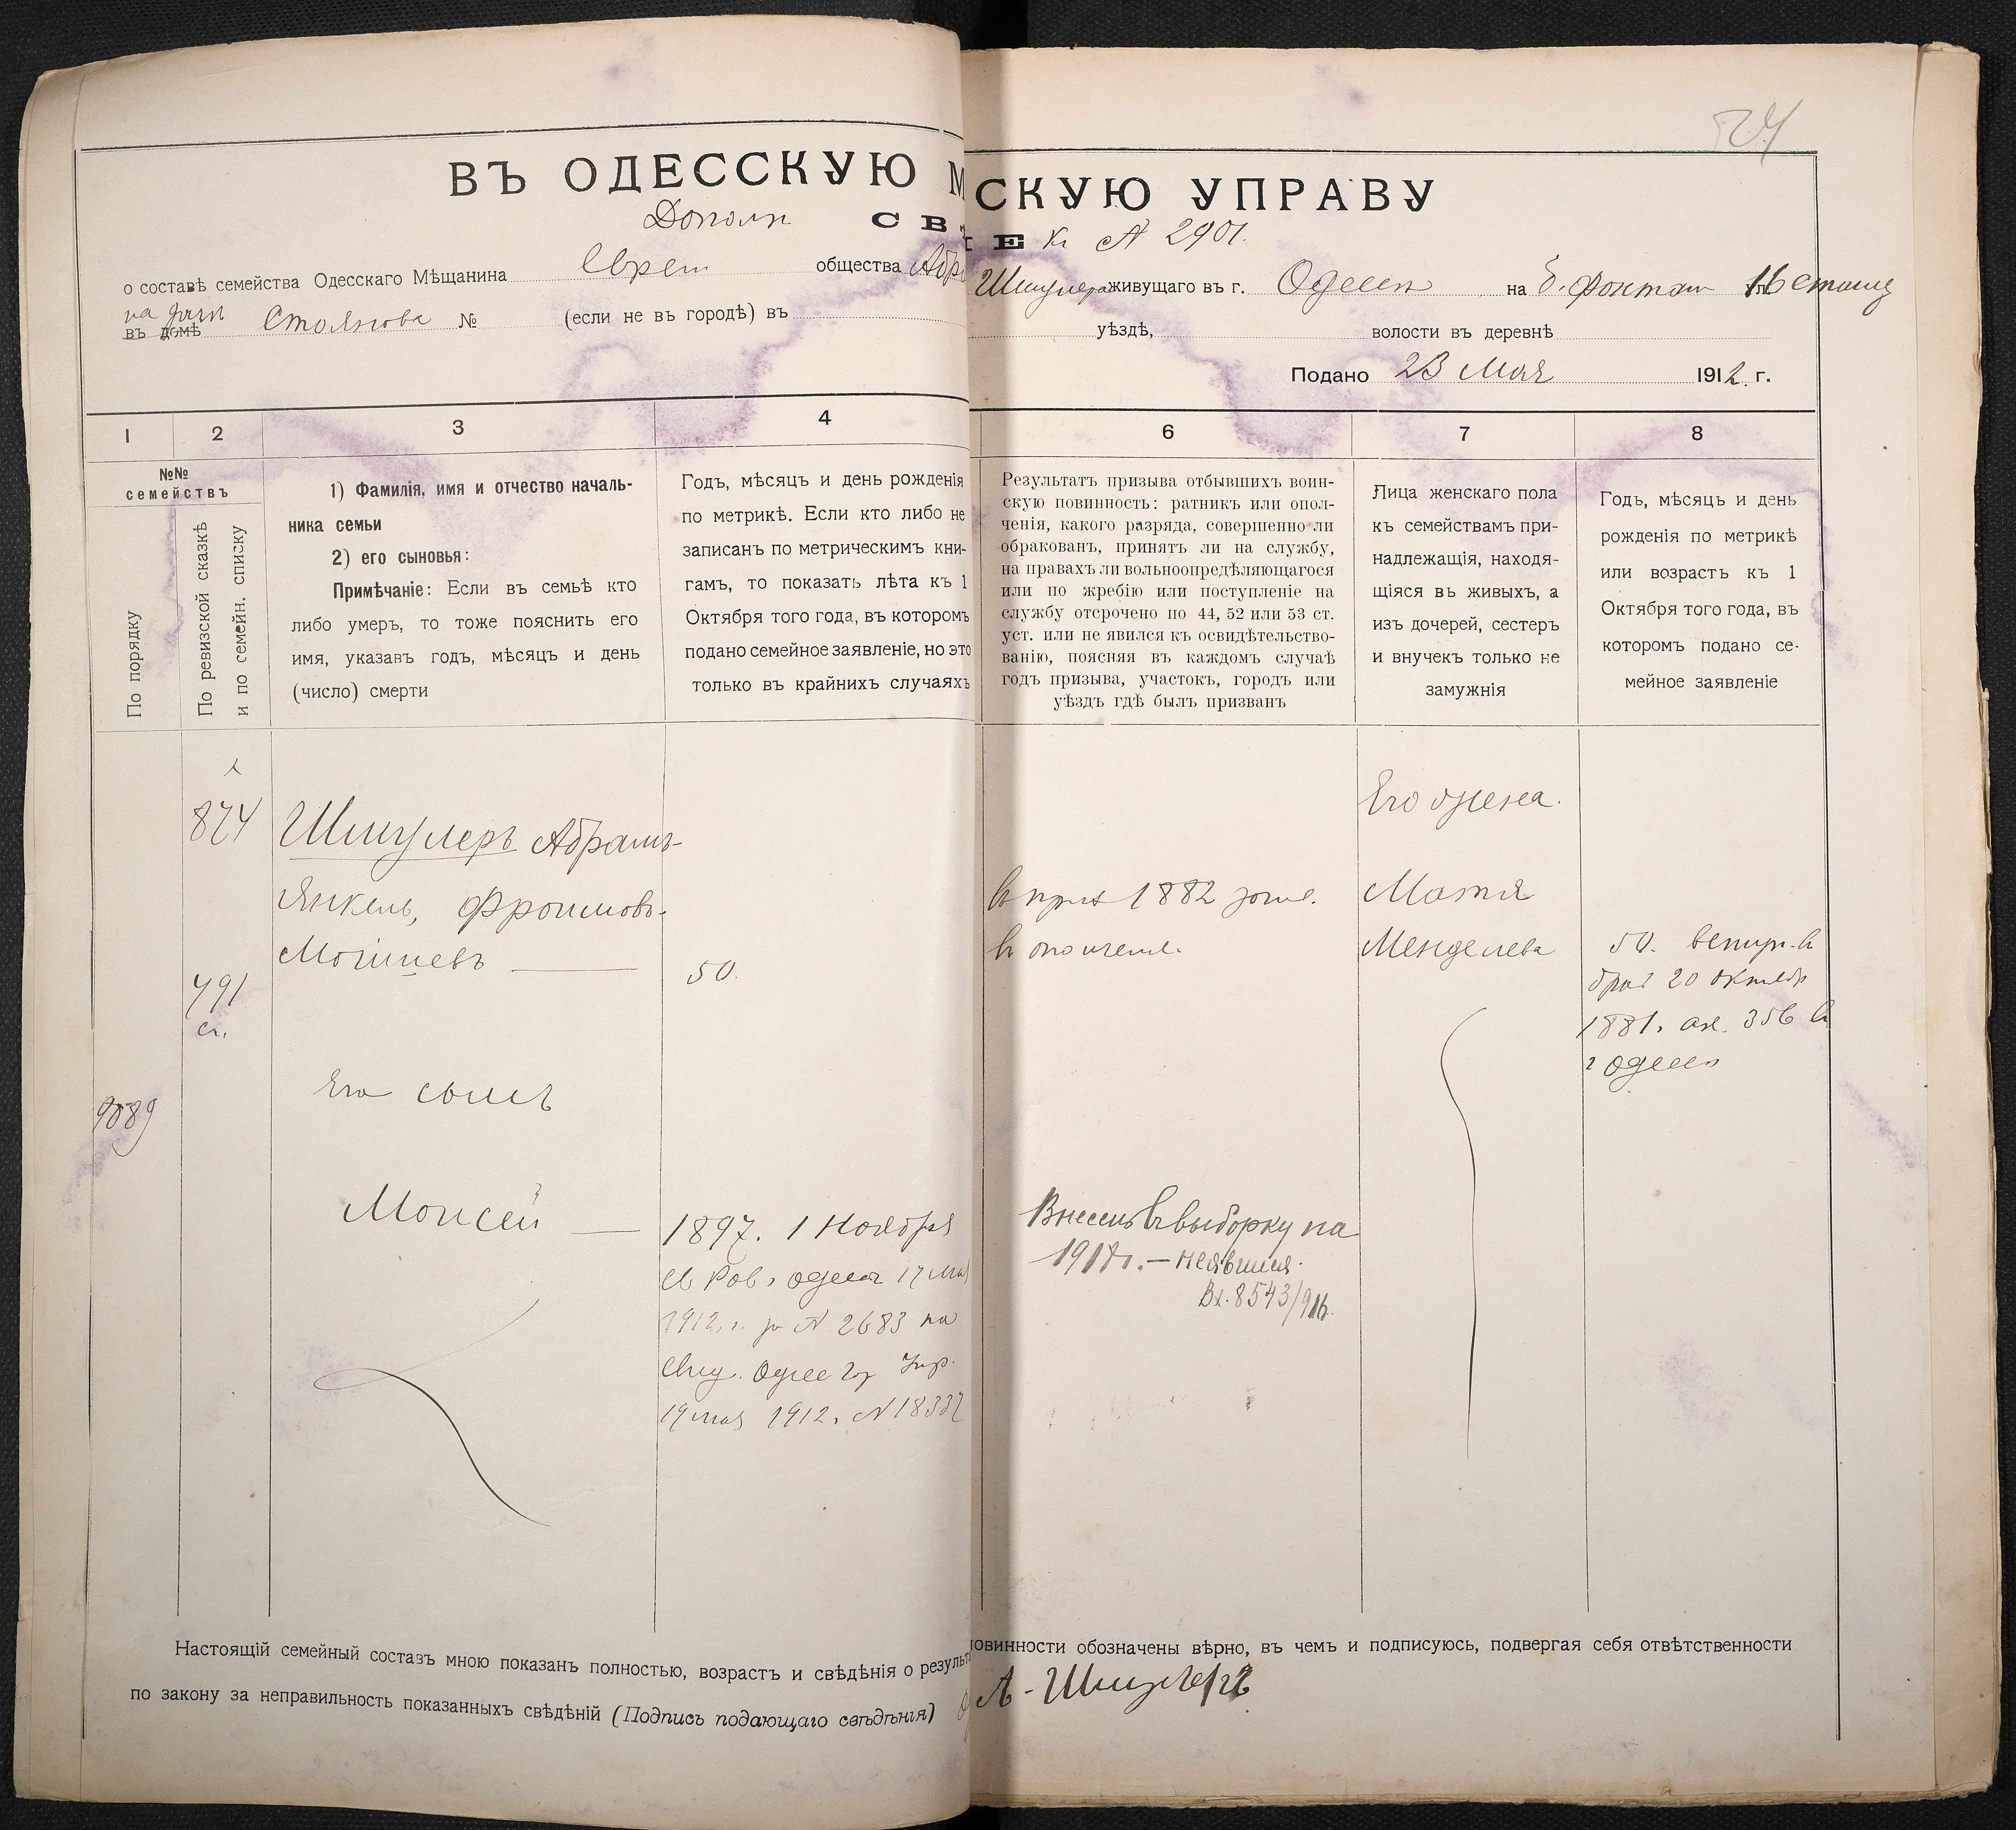 ВЪ ОДЕССКУЮ М
СКУЮ УПРАВУ
Дополн
СВ
Е къ № 2901.
о составѣ семейства Одесскаго Мѣщанина Еврея общества Абр
Шмулера живущаго въ г. Одессѣ на б. Фонтан 16 станц
на дачѣ
въ домѣ Столнова № (если не въ городѣ) въ
уѣздѣ, волости въ деревнѣ
Подано 23 Мая 1912 г.
1 2 3 4
6 7 8
№№
семействъ
По порядку
По ревизской сказкѣ
и по семейн. списку
1) Фамилія, имя и отчество началь-
ника семьи
2) его сыновья:
Примѣчаніе: Если въ семьѣ кто
либо умеръ, то тоже пояснить его
имя, указавъ годъ, мѣсяцъ и день
(число) смерти
Годъ, мѣсяцъ и день рожденія
по метрикѣ. Если кто либо не
записанъ по метрическимъ кни-
гамъ, то показать лѣта къ 1
Октября того года, въ которомъ
подано семейное заявленіе, но это
только въ крайнихъ случаяхъ
Результатъ призыва отбывшихъ воин-
скую повинность: ратникъ или опол-
ченія, какого разряда, совершенно ли
обракованъ, принятъ ли на службу,
на правахъ ли вольноопредѣляющагося
или по жребію или поступленіе на
службу отсрочено по 44, 52 или 53 ст.
уст. или не явился къ освидѣтельство-
ванію, поясняя въ каждомъ случаѣ
годъ призыва, участокъ, городъ или
уѣздъ гдѣ былъ призванъ
Лица женскаго пола
къ семействамъ при-
надлежащія, находя-
щіяся въ живыхъ, а
изъ дочерей, сестеръ
и внучекъ только не
замужнія
Годъ, мѣсяць и день
рожденія по метрикѣ
или возрасть къ 1
Октября того года, въ
которомъ подано се-
мейное заявленіе
Его жена.
874 Шмулеръ Абрамъ-
Янкель, Фроимовъ-
Мошневъ — 50.
791
ст.
въ приз 1882 зачис.
въ ополчение
Матля
Менделева
50. вступ. въ
бракъ 20 октябр
1881. ак. 356 въ
г Одессѣ
Его сынъ
9089
Моисей — 1897. 1 Ноября
св Рав. Одесск 17 мая
1912 г. за № 2683 на
свид. Одесс Гор Упр.
19 мая 1912. № 18337
Внесенъ въ выборку на
1917г. — неявился.
Вх. 8543/916.
Настоящій семейный составъ мною показанъ полностью, возрастъ и свѣдѣнія о результ
повинности обозначены вѣрно, въ чемъ и подписуюсь, подвергая себя отвѣтственности
по закону за неправильность показанныхъ свѣдѣній (Подпись подающаго свѣдѣнія)
А - Шмулеръ